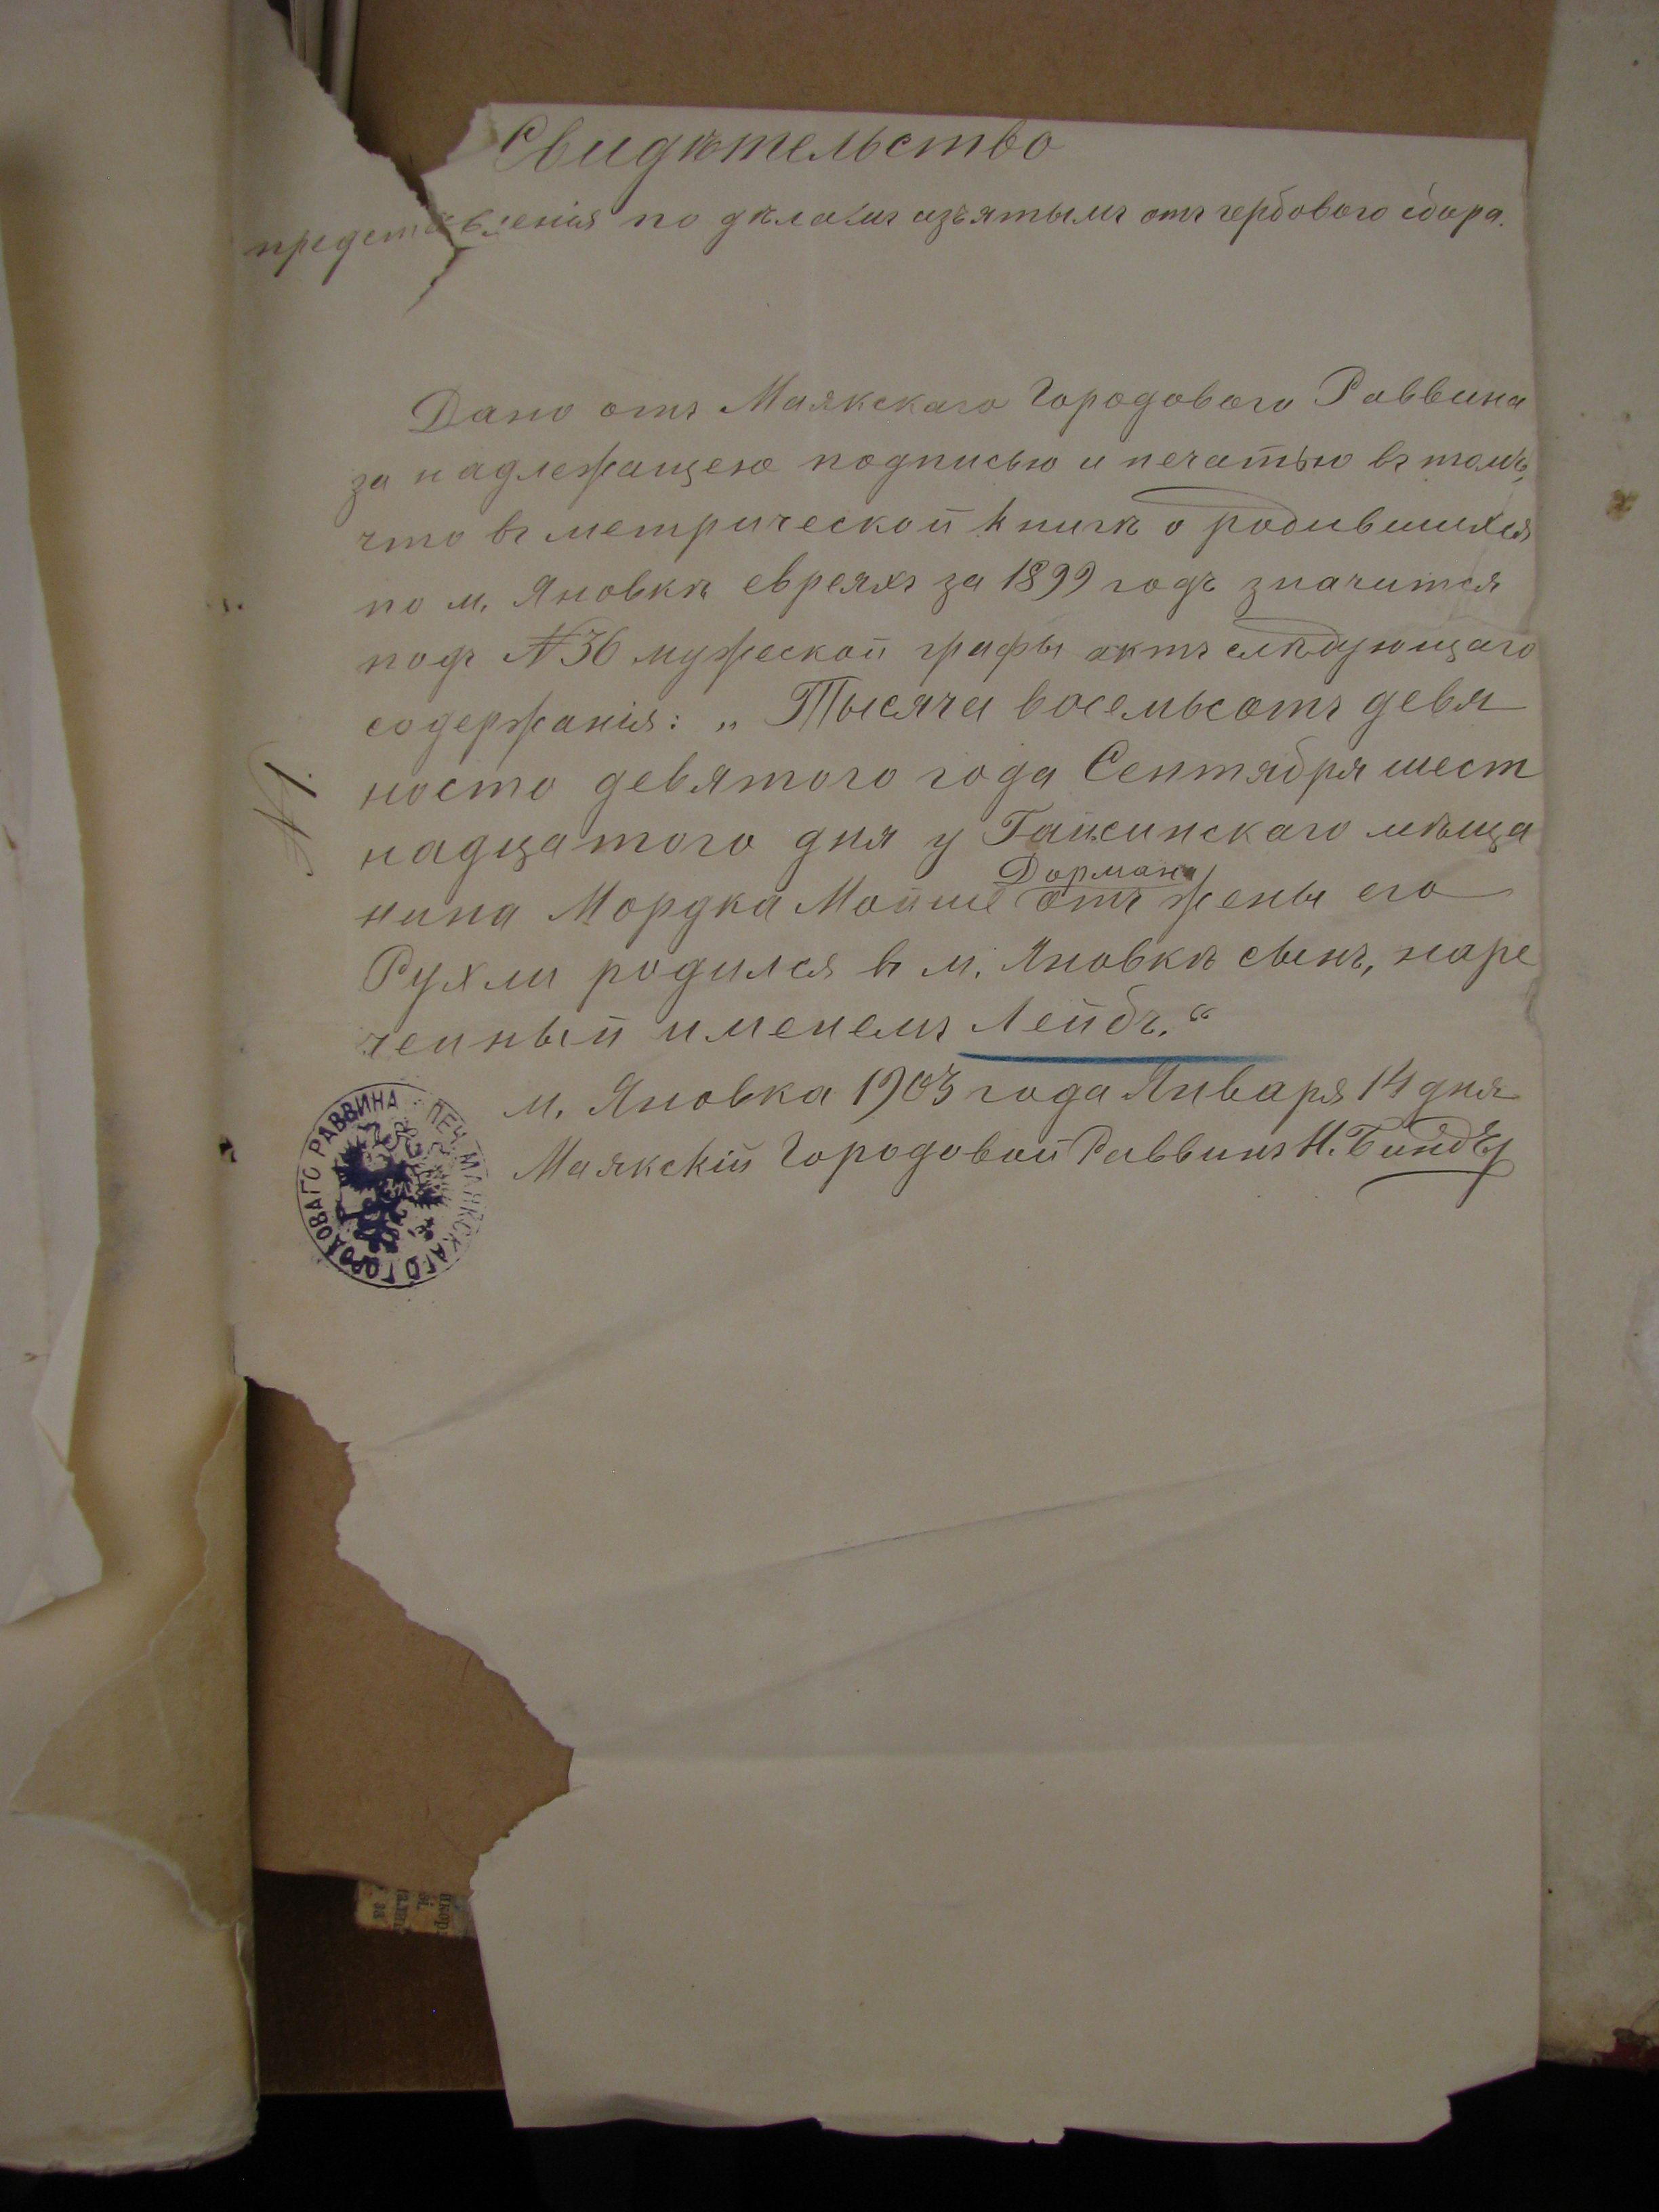 Свидѣтельство
представленія по дѣламъ изъятымъ отъ гербового сбора.
Дано отъ Маякскаго Городового Раввина
за надлежащею подписью и печатью въ томъ,
что въ метрической книгѣ о родившихся
по м. Яновкѣ евреяхъ за 1899 годъ значится
подъ №36 мужеской графы актъ слѣдующаго
содержанія: „Тысяча восемьсотъ девя
носто девятого года Сентября шест
надцатого дня у Гайсинскаго мѣща
Дормана
нина Мордка Мойше отъ жены его
Рухли родился въ м. Яновкѣ сынъ, наре
ченный именемъ Лейбъ.“
м. Яновка 1903 года Января 14 дня
Маякскій Городовой Раввинъ Н. Биндер
№1.
ПЕЧ. МАЯКСКАГО ГОРОДОВАГО РАВВИНА